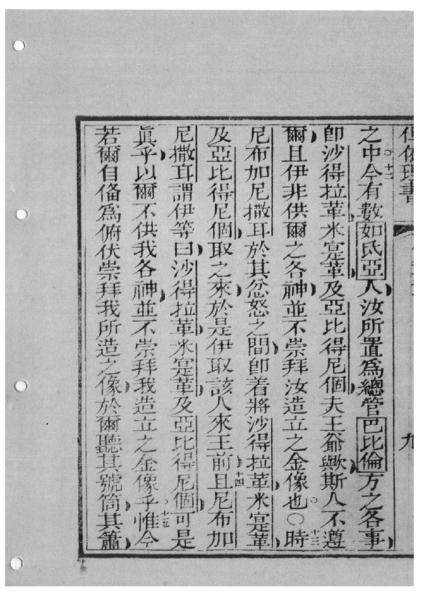 但依理書
之中今有數如氐亞人汝所置為總管巴比倫方之各事
即沙得拉革米寔革及亞比得尼個夫王爺歟斯人不遵
爾且伊非供爾之各神並不崇拜汝造立之金像也○時
尼布加尼撒耳於其忿怒之間即着將沙得拉革米寔革
及亞比得尼個取之來於是伊取該人來王前且尼布加
尼撒耳謂伊等曰沙得拉革米寔革及亞比得尼個可是
眞乎以爾不供我各神並不崇拜我造立之金像乎惟今
若爾自俻為俯伏崇拜我所造之像於爾聽其號筒其簫